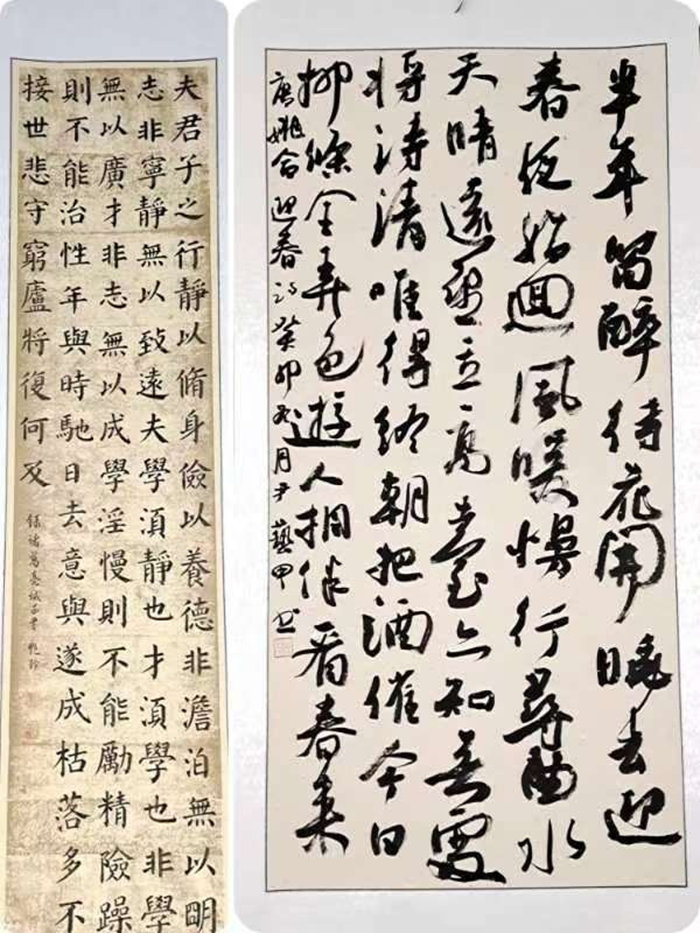 夫君子之行靜以脩身儉以養德非澹泊無以明
志非寧靜無以致遠夫學湏靜也才湏學也非學
無以廣才非志無以成學淫慢則不能勵精險躁
則不能治性年與時馳日去意與遂成枯落多不
接世悲守窮廬將復何及
錄諸葛亮誡子書
半年留醉待花開曉去迎
春夜始迴風暖慢行尋曲水
天晴遠望立高臺亦知無處
將詩請唯得終朝把酒催今日
柳條全弄色遊人相伴看春來
唐姚合迎春詩癸卯月尹藝甲书